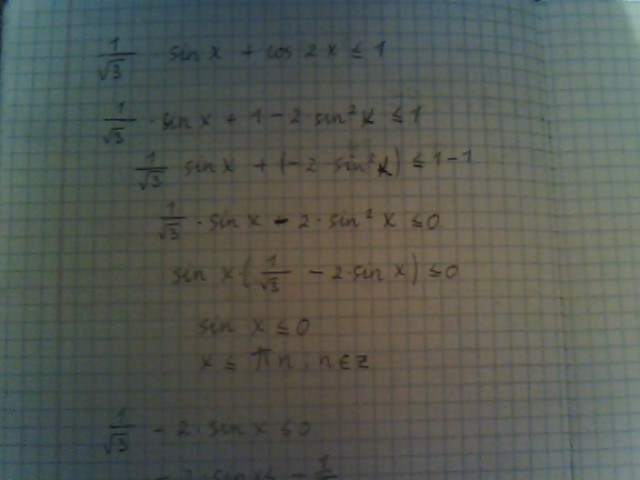 1/√3 sin x + cos 2x ≤ 1
1/√3 · sin x + 1 - 2 sin² x ≤ 1
1/√3 sin x + (-2 sin² x) ≤ 1-1
1/√3 · sin x - 2 · sin² x ≤ 0
sin x (1/√3 - 2 · sin x) ≤ 0
sin x ≤ 0
x ≤ πn, n ∈ z
1/√3 - 2 · sin x ≤ 0
- 2 · sin x ≤ - 1/